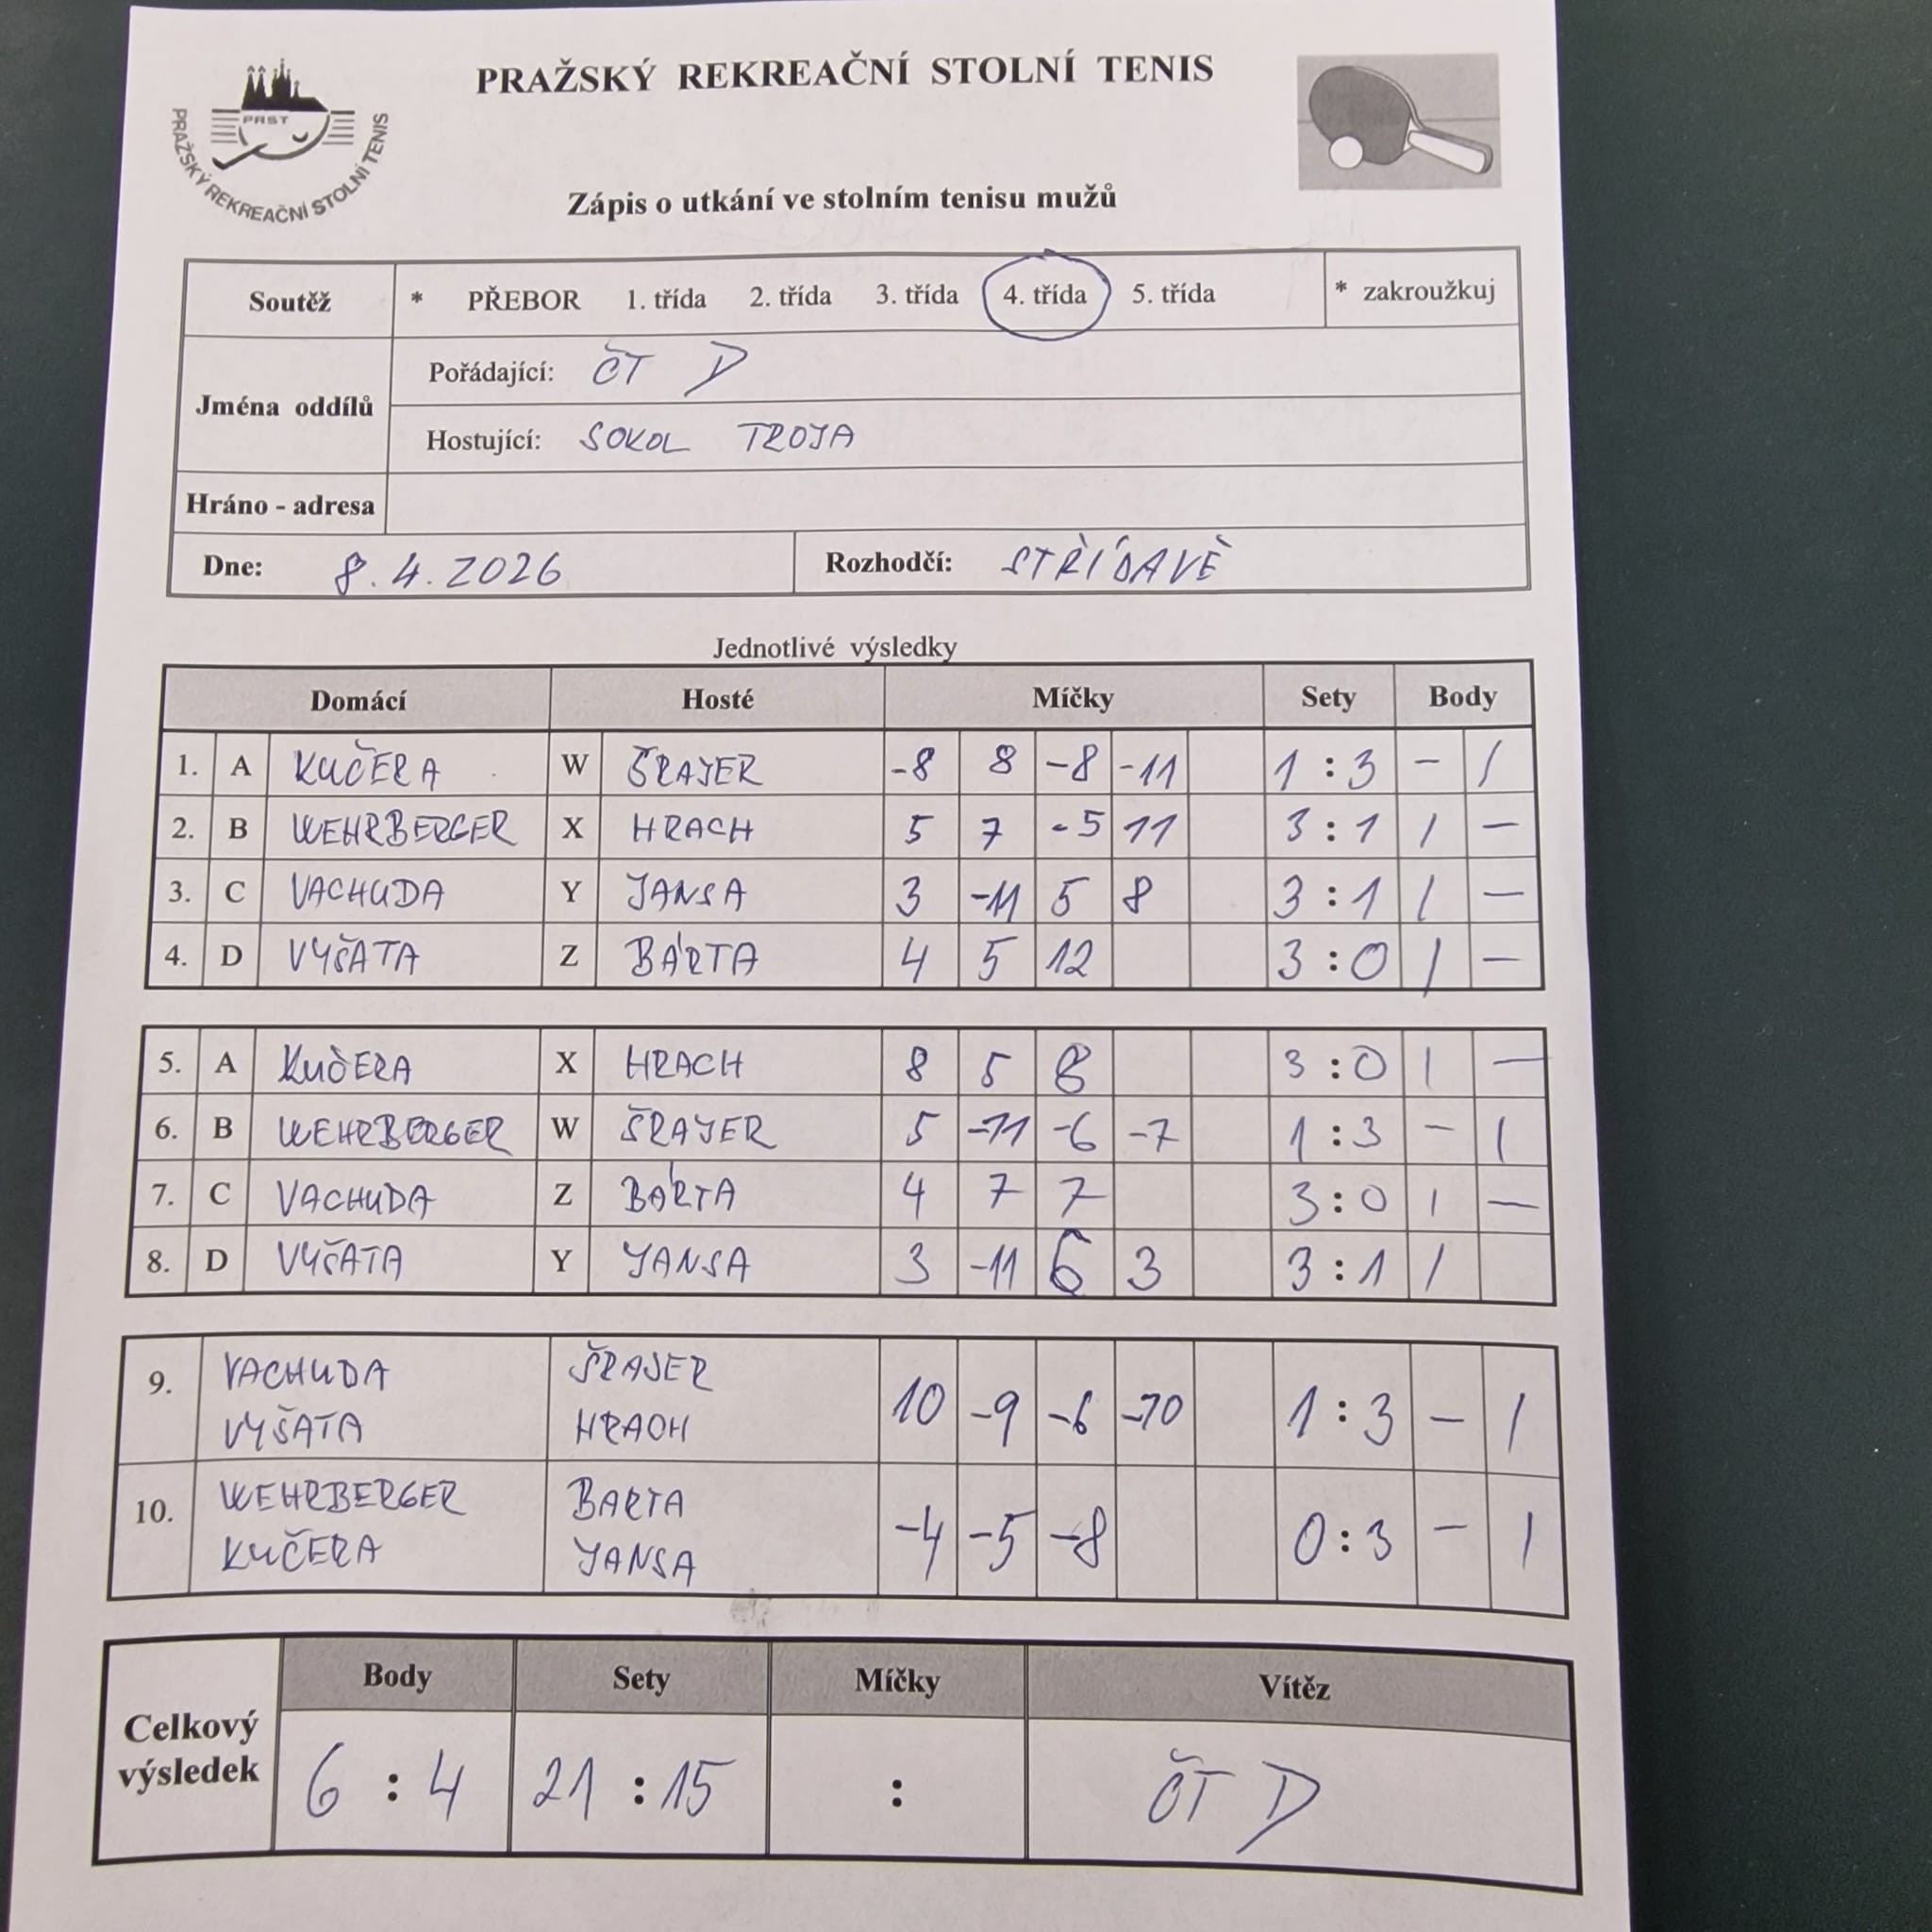 PRAŽSKÝ REKREAČNÍ STOLNÍ TENIS
PRST
PRAŽSKÝ REKREAČNÍ STOLNÍ TENIS
Zápis o utkání ve stolním tenisu mužů
Soutěž * PŘEBOR 1. třída 2. třída 3. třída 4. třída 5. třída * zakroužkuj
Jména oddílů
Pořádající: ČT D
Hostující: SOKOL TROJA
Hráno - adresa
Dne: 8.4.2026 Rozhodčí: STŘÍDAVĚ
Jednotlivé výsledky
Domácí Hosté Míčky Sety Body
1. A KUČERA W ŠRAJER -8 8 -8 -11 1 : 3 - 1
2. B WEHRBERGER X HRACH 5 7 -5 11 3 : 1 1 -
3. C VACHUDA Y JANSA 3 -11 5 8 3 : 1 1 -
4. D VYŠATA Z BÁRTA 4 5 12 3 : 0 1 -
5. A KUČERA X HRACH 8 5 8 3 : 0 1 -
6. B WEHRBERGER W ŠRAJER 5 -11 -6 -7 1 : 3 - 1
7. C VACHUDA Z BÁRTA 4 7 7 3 : 0 1 -
8. D VYŠATA Y JANSA 3 -11 6 3 3 : 1 1
9. VACHUDA ŠRAJER
VYŠATA HRACH 10 -9 -6 -10 1 : 3 - 1
10. WEHRBERGER BARTA
KUČERA JANSA -4 -5 -8 0 : 3 - 1
Celkový výsledek
Body Sety Míčky Vítěz
6 : 4 21 : 15 : ČT D